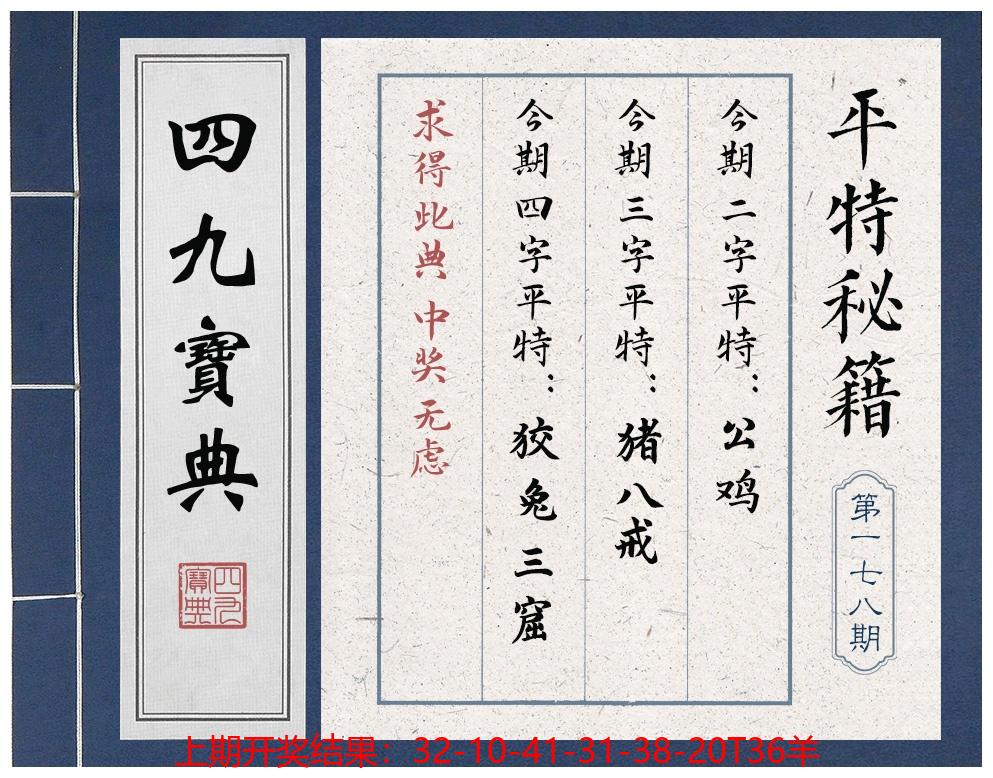 平特秘籍
第一七八期
今期二字平特：公鸡
今期三字平特：猪八戒
今期四字平特：狡兔三窟
求得此典 中奖无虑
四九寶典
四九寶典
上期开奖结果：32-10-41-31-38-20T36羊